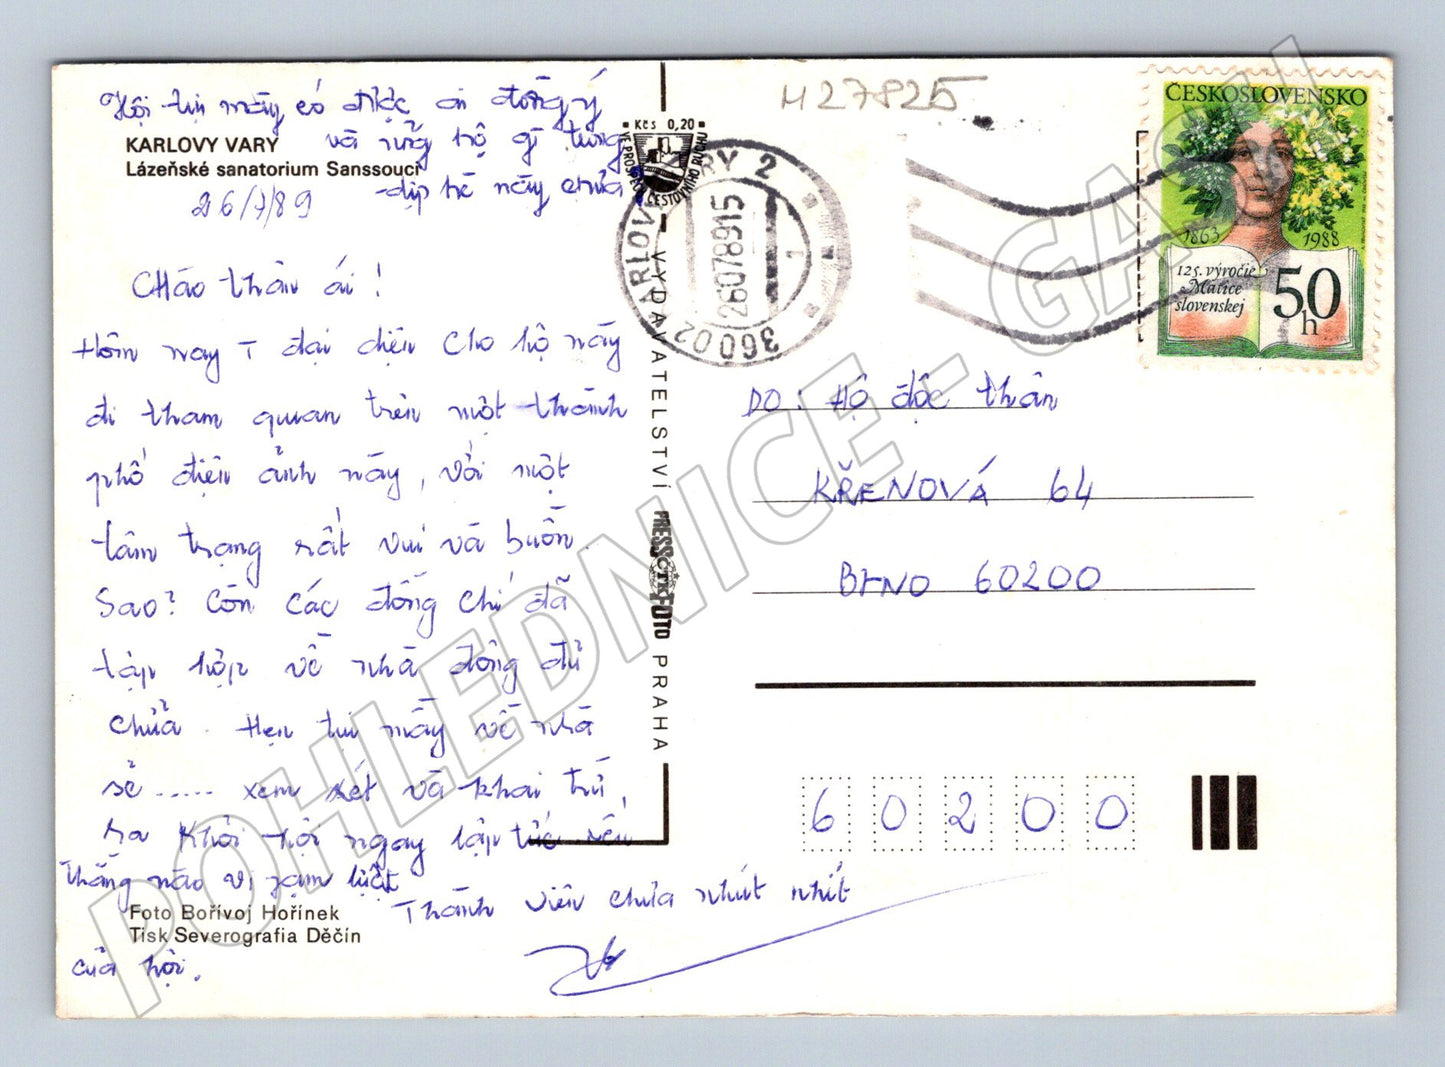 Hội tụi mày có được ai đồng ý
và ủng hộ gì từng
KARLOVY VARY
Lázeňské sanatorium Sanssouci
dịp hè này chưa
26/7/89
Chào thân ái !
Hôm nay T đại diện cho hộ này
đi tham quan trên một thành
phố điện ảnh này, với một
tâm trạng rất vui và buồn.
Sao? Còn các đồng chí đã
tập hợp về nhà đông đủ
chửa. Hẹn tụi mày về nhà
sẽ ..... xem xét và khai trừ,
ra khỏi hội ngay lập tức nếu
thằng nào vi phạm luật
Foto Bořivoj Hořínek
Tisk Severografia Děčín
của hội.
Thành viên chưa nhút nhít
M27825
Kčs 0,20
VE PROSPĚCH CESTOVNÍHO RUCHU
VYDAVATELSTVÍ PRESSFOTO PRAHA
ČTK
KARLOVY VARY 2
26078915
1
36002
ČESKOSLOVENSKO
1863 1988
125. výročie
Matice
slovenskej
50
h
DO. Hộ độc thân
KŘENOVÁ 64
BRNO 60200
60200
POHLEDNICE - GASU